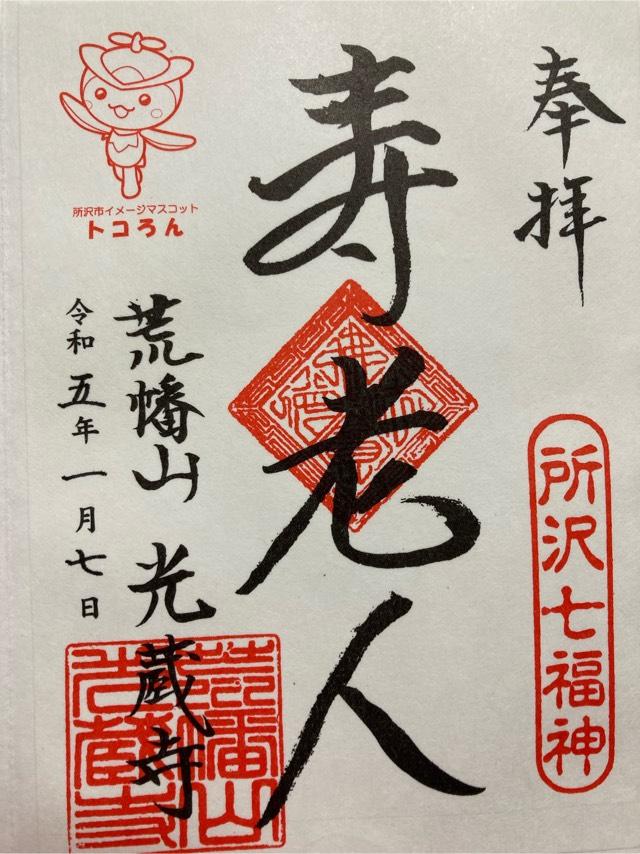 奉拝
所沢七福神
寿老人
荒幡山 光蔵寺
令和五年一月七日
所沢市イメージマスコット
トコろん
荒幡山
光蔵寺